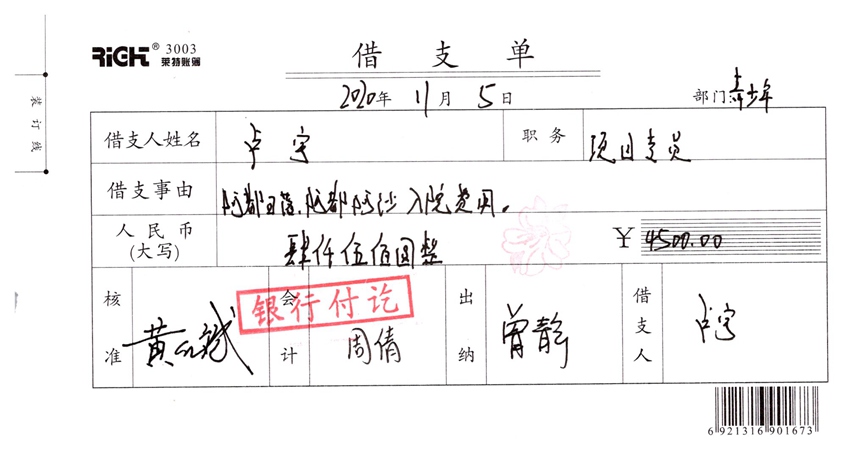 RiGHT® 3003
莱特账簿
借 支 单
2020年 11月 5日
部门: 青少年
装订线
借支人姓名 卢宇 职务 项目专员
借支事由 阿都日落、阿都阿沙入院费用。
人民币 肆仟伍佰圆整 ¥ 4500.00
(大写)
核准 黄 会计 周倩 出纳 曾静 借支人 卢宇
银行付讫
6 921316 901673